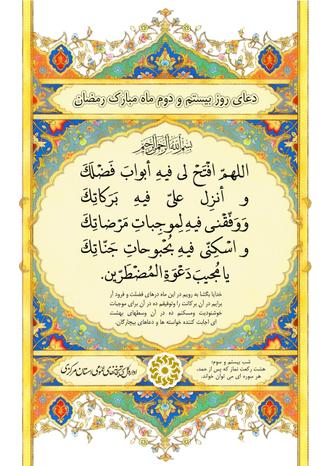 دعای روز بیستم و دوم ماه مبارک رمضان
بسم الله الرحمن الرحیم
اللهمّ افْتَحْ لی فیهِ أبوابَ فَضْلَكَ
و أنزِل علیّ فیهِ بَرَکاتِكَ
وَوَفّقْنی فیهِ لِموجِباتِ مَرْضاتِكَ
و اسْکِنّی فیهِ بُحْبوحاتِ جَنّاتِكَ
یا مُجیبَ دَعْوَةِ المُضْطَرّین.
خدایا بگشا به رویم در این ماه درهای فضلت و فرود آر
برایم در آن برکاتت را وتوفیقم ده در آن برای موجبات
خوشنودیت ومسکنم ده در آن وسطهای بهشت
ای اجابت کننده خواسته ها و دعاهای بیچارگان.
شب بیستم و سوم:
هشت رکعت نماز که پس از حمد،
هر سوره ای می توان خواند.
اداره کل کتابخانه‌های عمومی استان مرکزی